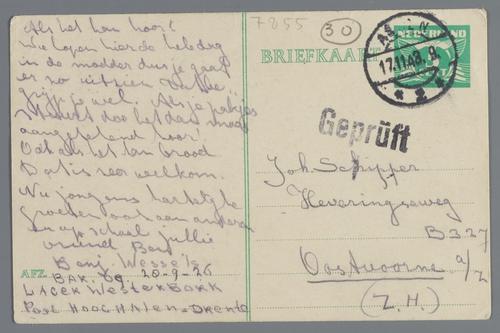 Als het kan hoor!
We lopen hier de hele dag
in de modder dus je gaat
er zo uitzien dat
grijp je wel. Als je pakjes
stuurt doe het dan maar
aangetekend hoor!
Ook als het kan brood
Dat is zeer welkom.
Nu jongens hartelijke
groeten ook aan anderen
en op school jullie
vriend Benj
Benj. Wessels
AFZ. BAK. 69 20-9-26
LAGER WESTERBORK
Post HOOGHALEN-DRENTE
7855
30
BRIEFKAART
NEDERLAND
17.11.42. 9
Geprüft
Joh. Schipper
Heveringseweg
B327
Oostvoorne a/Z
(Z.H.)